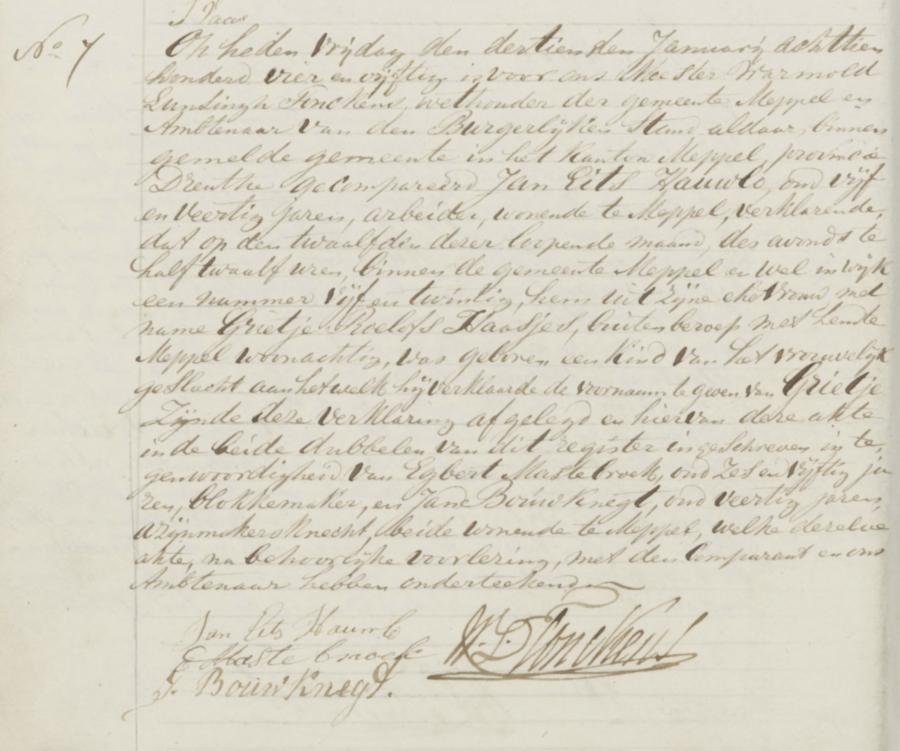 No 7
Op heden Vrijdag den dertienden Januarij achttien
honderd vier en vijftig is voor ons Meester Warmold
Lunsingh Tonckens, wethouder der gemeente Meppel en
Ambtenaar van den Burgerlijken Stand aldaar, binnen
gemelde gemeente in het Kanton Meppel, provincie
Drenthe gecompareerd Jan Eits Hauwlo, oud vijf
en veertig jaren, arbeider, wonende te Meppel, verklarende,
dat op den twaalfden dezer loopende maand, des avonds te
half twaalf uren, binnen de gemeente Meppel en wel in wijk
een nummer vijf en twintig, hem uit zijne ehevrouw met
name Grietje Roelofs Haasjes, buiten beroep met hem te
Meppel woonachtig, was geboren een kind van het vrouwelijk
geslacht aan hetwelk hij verklaarde de voornaam te geven van Grietje
Zijnde deze verklaring afgelegd en hiervan deze akte
in de beide dubbelen van dit register ingeschreven in te,
genwoordigheid van Egbert Mastebroek, oud zes en vijftig ja
ren, blokkemaker, en Jane Bouwknegt, oud veertig jaren,
azijnmakersknecht, beide wonende te Meppel, welke dezelve
akte, na behoorlijke voorlezing, met den Comparant en ons
Ambtenaar hebben onderteekend
Jan Eits Hauwlo
E Mastebroek
J. Bouwknegt.
W. L. Tonckens